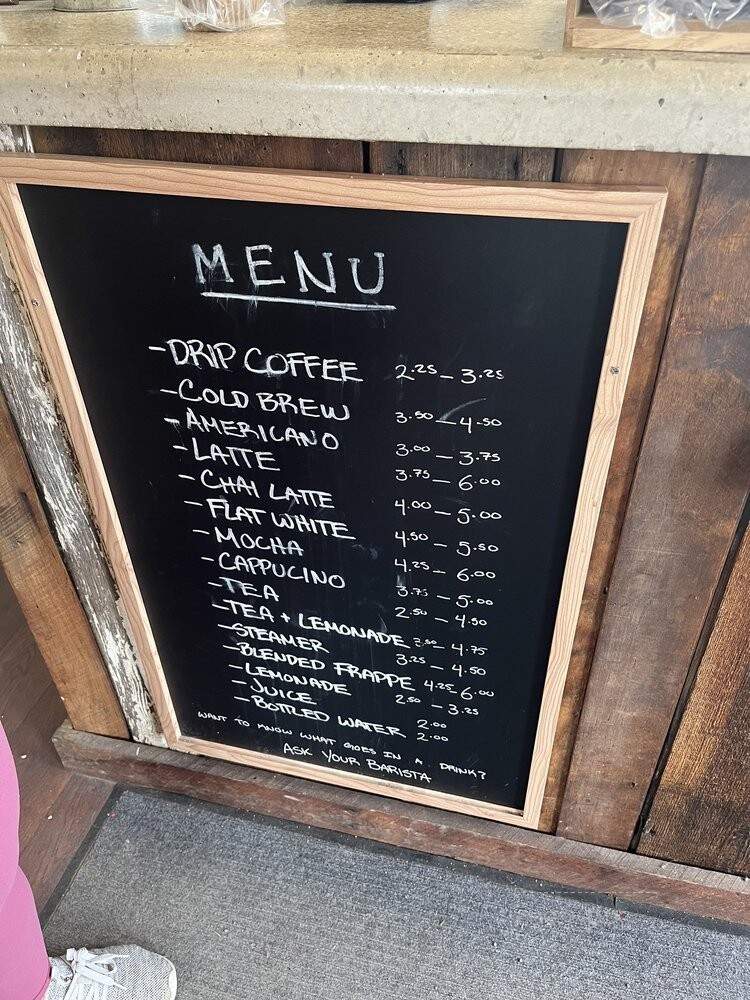 MENU
-DRIP COFFEE 2.25 - 3.25
-COLD BREW 3.50 - 4.50
-AMERICANO 3.00 - 3.75
-LATTE 3.75 - 6.00
-CHAI LATTE 4.00 - 5.00
-FLAT WHITE 4.50 - 5.50
-MOCHA 4.25 - 6.00
-CAPPUCINO 3.75 - 5.00
-TEA 2.50 - 4.50
-TEA + LEMONADE - 4.75
-STEAMER 3.25 - 4.50
-BLENDED FRAPPE 4.25 - 6.00
-LEMONADE 2.50 - 3.25
-JUICE 2.00
-BOTTLED WATER 2.00
WANT TO KNOW WHAT GOES IN A DRINK?
ASK YOUR BARISTA